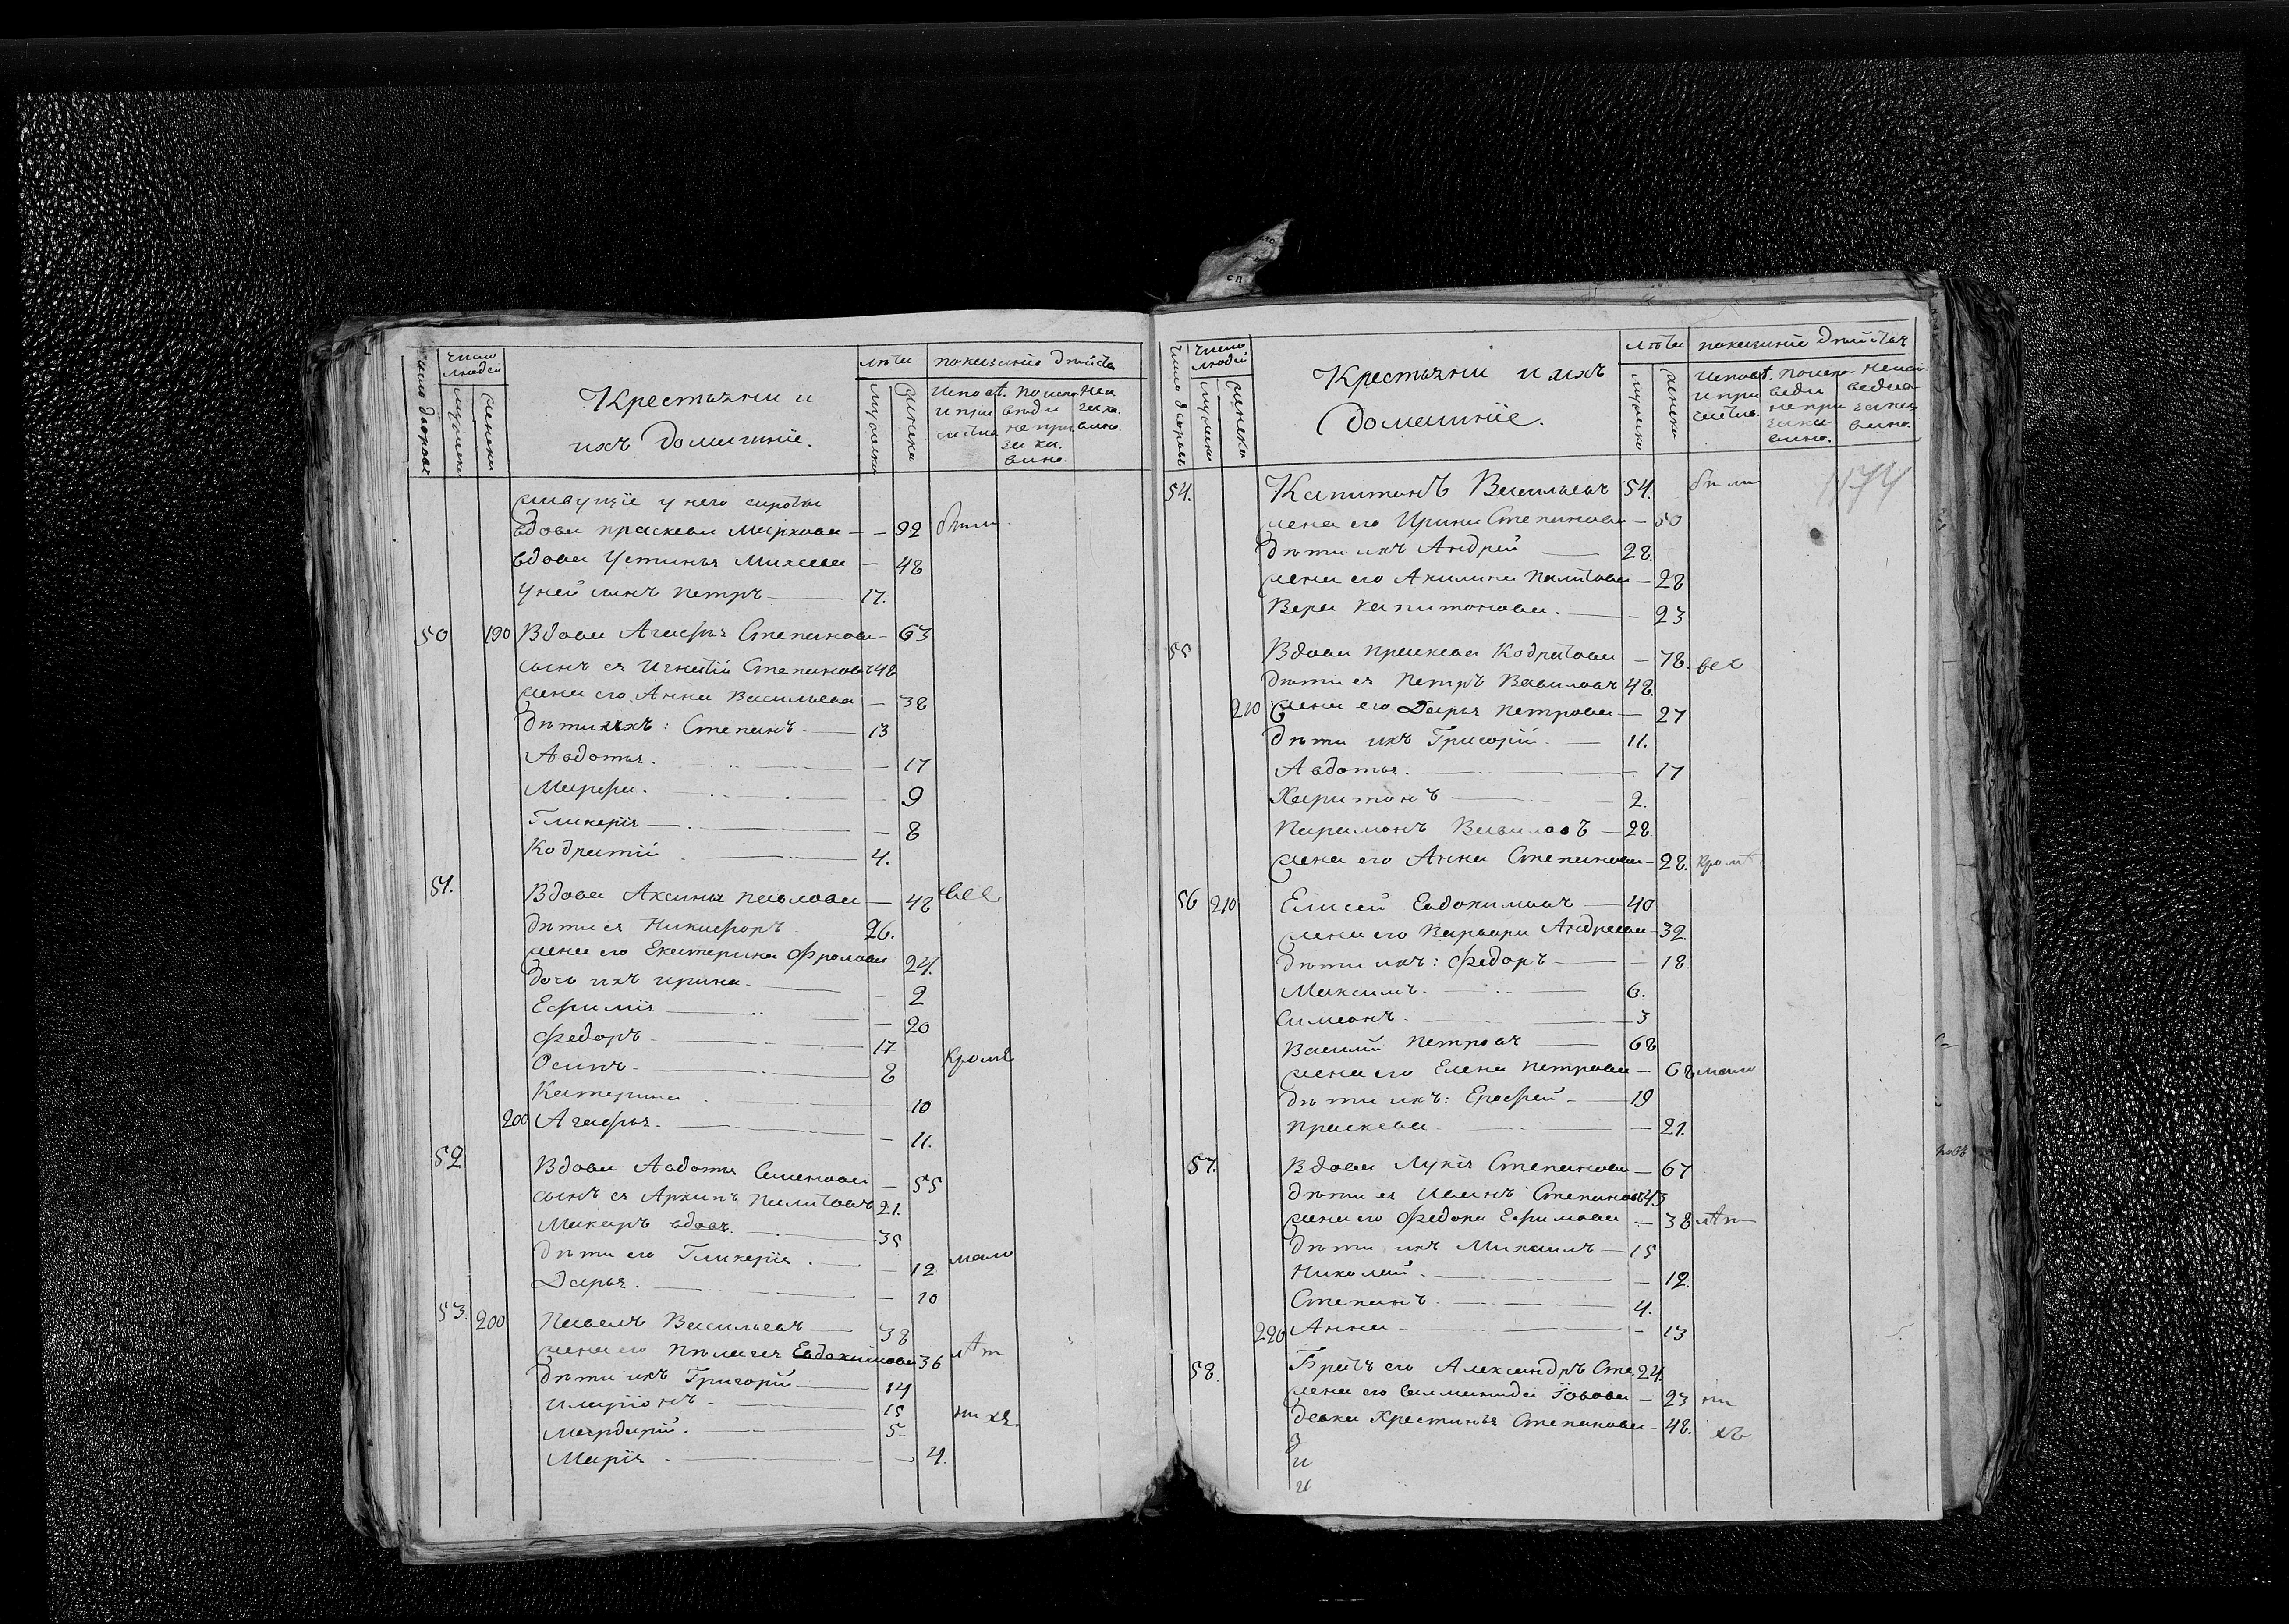 число дворовъ
число людей
мужеска
женска
Крестьяни и
ихъ домашніе.
лѣта
мужеска
женска
показаніе дѣйств
живущіе у него сироты
вдова праскева Маркова — — 92 были
вдова Устинья Мих — 48
у ней сынъ петръ — 17.
50 190 Вдова Агафья Степанова — 63
сынъ ея Игнатій Степановъ 48
жена его Анна Васильева — 38
дѣти ихъ: Степанъ. — 13
Авдотья. — 17
Марфа. — 9
Гликерія — 8
Кодратій — 4.
51. Вдова Аксинья павлова — 48 все
дѣти ея Никифоръ 26.
жена его Екатерина Фролова 24.
дочь ихъ ирина. — 2
Ефимія — 20
Федоръ — 17
Осипъ. — 8 кромѣ
Катерина — 10
200 Агафья. — 11.
52 Вдова Авдотья Семенова — 55
сынъ ея Архипъ 21.
Макаръ вдовъ. — 35
дѣти его Гликерія. — 12 мало
Дарья. — 10
53. 200 Павелъ Васильевъ — 38
жена его пелагея Евдокимова 36 лѣт
дѣти ихъ Григорій — 14
иларіонъ — 15 ни хъ
мардарій. — 5
Марія — 4.
число дворовъ
число людей
мужеска
женска
Крестьяни и ихъ
домашніе.
лѣта
мужеска
женска
показаніе дѣйствъ
1174
54. Капитонъ Васильевъ 54. были
жена его Ирина Степанова — 50
дѣти ихъ Андрей — 28.
жена его Акилина — 28
Вера капитонова. — 23
55 Вдова праскева Кодратова — 78. все
дѣти ея Петръ Вавиловъ 48.
210 жена его Дарья петрова — 27
дѣти ихъ Григорій. — 11.
Авдотья. — 17
Харитонъ — 2.
Парамонъ Вавиловъ — 28
жена его Анна Степанова — 28. кромѣ
56 210 Елисей Евдокимовъ — 40
жена его Варвара Андреева — 32
дѣти ихъ: Федоръ — 18.
Максимъ. — 6.
Симеонъ. — 3
Василій Петровъ — 68
жена его Елена Петрова — 68 мало
дѣти ихъ: Ерофей — 19
праскева — 21.
57. Вдова Лукія Степанова — 67
дѣти ея Иванъ Степановъ 43
жена его Федора Ефимова — 38 лѣт
дѣти ихъ Михаилъ — 15
Николай. — 12.
Степанъ. — 4.
220 Анна — 13
58. Братъ его Александръ Сте 24.
жена его Іовова — 23 ни
девка Крестинья Степанова — 48. хъ